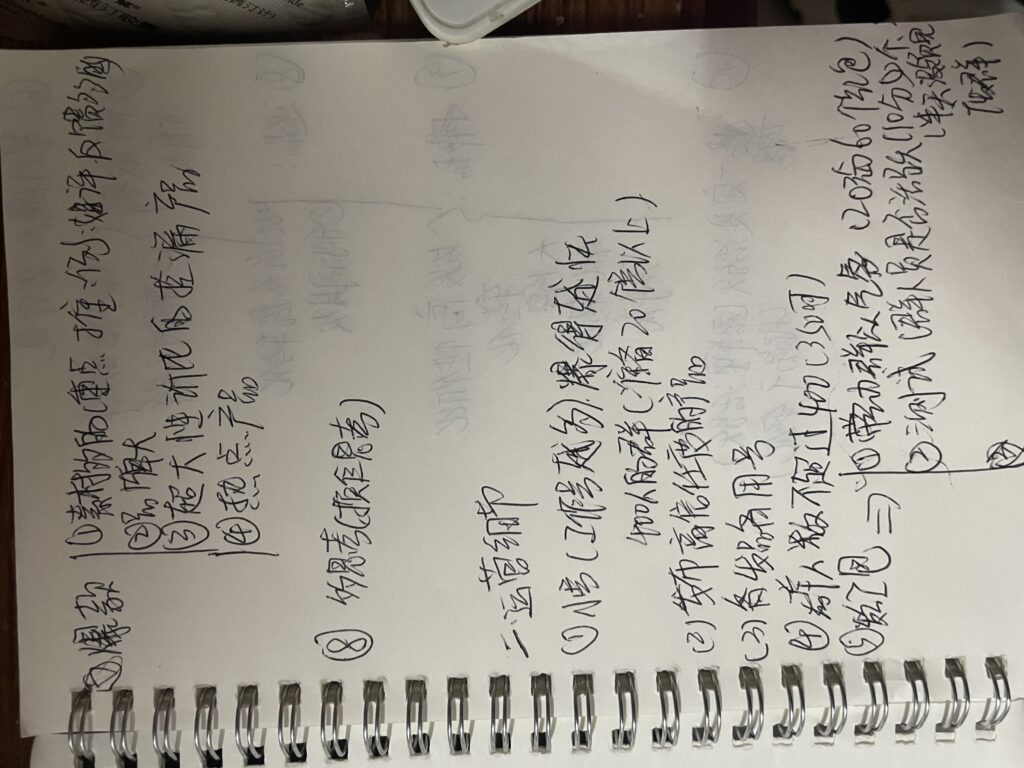 ⑦爆款 ①素材多的(重点推:例:好评反馈多的
②品牌大
③超大性价比的捡漏产品
④热点产品
⑧ 多思考(换位思考)
二.运营细节
①小号(工作号越多)爆得越快
400人的群(准备20个以上)
(2)发布高信任度的产品
(3)备发品备用号
④群人数不超过400(350可)
⑤红包 ⇒ ①带动群公气氛 (20to60个红包)
②测试(群人员是否活跃(10分
(半天没领完